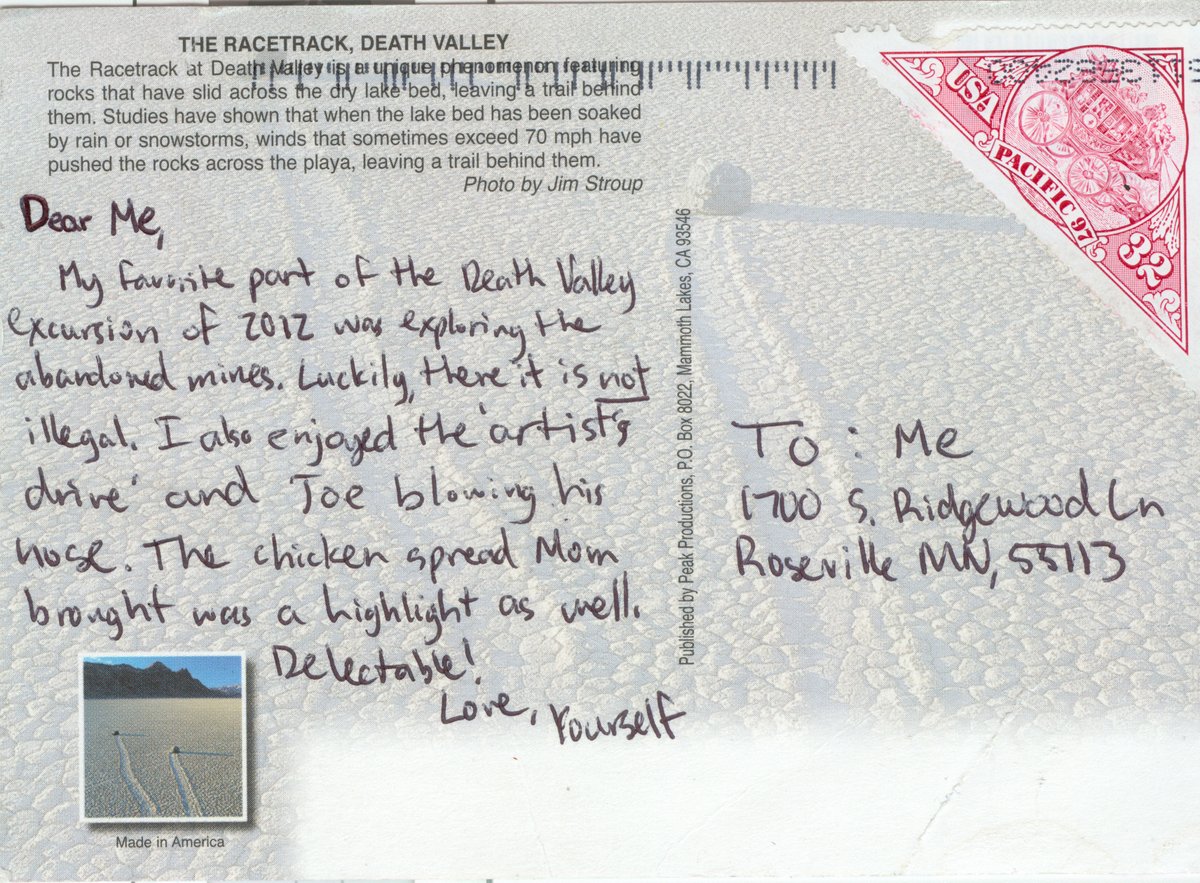 THE RACETRACK, DEATH VALLEY
The Racetrack at Death Valley is a unique phenomenon featuring
rocks that have slid across the dry lake bed, leaving a trail behind
them. Studies have shown that when the lake bed has been soaked
by rain or snowstorms, winds that sometimes exceed 70 mph have
pushed the rocks across the playa, leaving a trail behind them.
Photo by Jim Stroup
Dear Me,
My favorite part of the Death Valley
excursion of 2012 was exploring the
abandoned mines. Luckily, there it is not
illegal. I also enjoyed the 'artist's
drive' and Joe blowing his
nose. The chicken spread Mom
brought was a highlight as well.
Delectable!
Love, Yourself
Made in America
Published by Peak Productions, P.O. Box 8022, Mammoth Lakes, CA 93546
USA
PACIFIC 97
32
To: Me
1700 S. Ridgewood Ln
Roseville MN, 55113